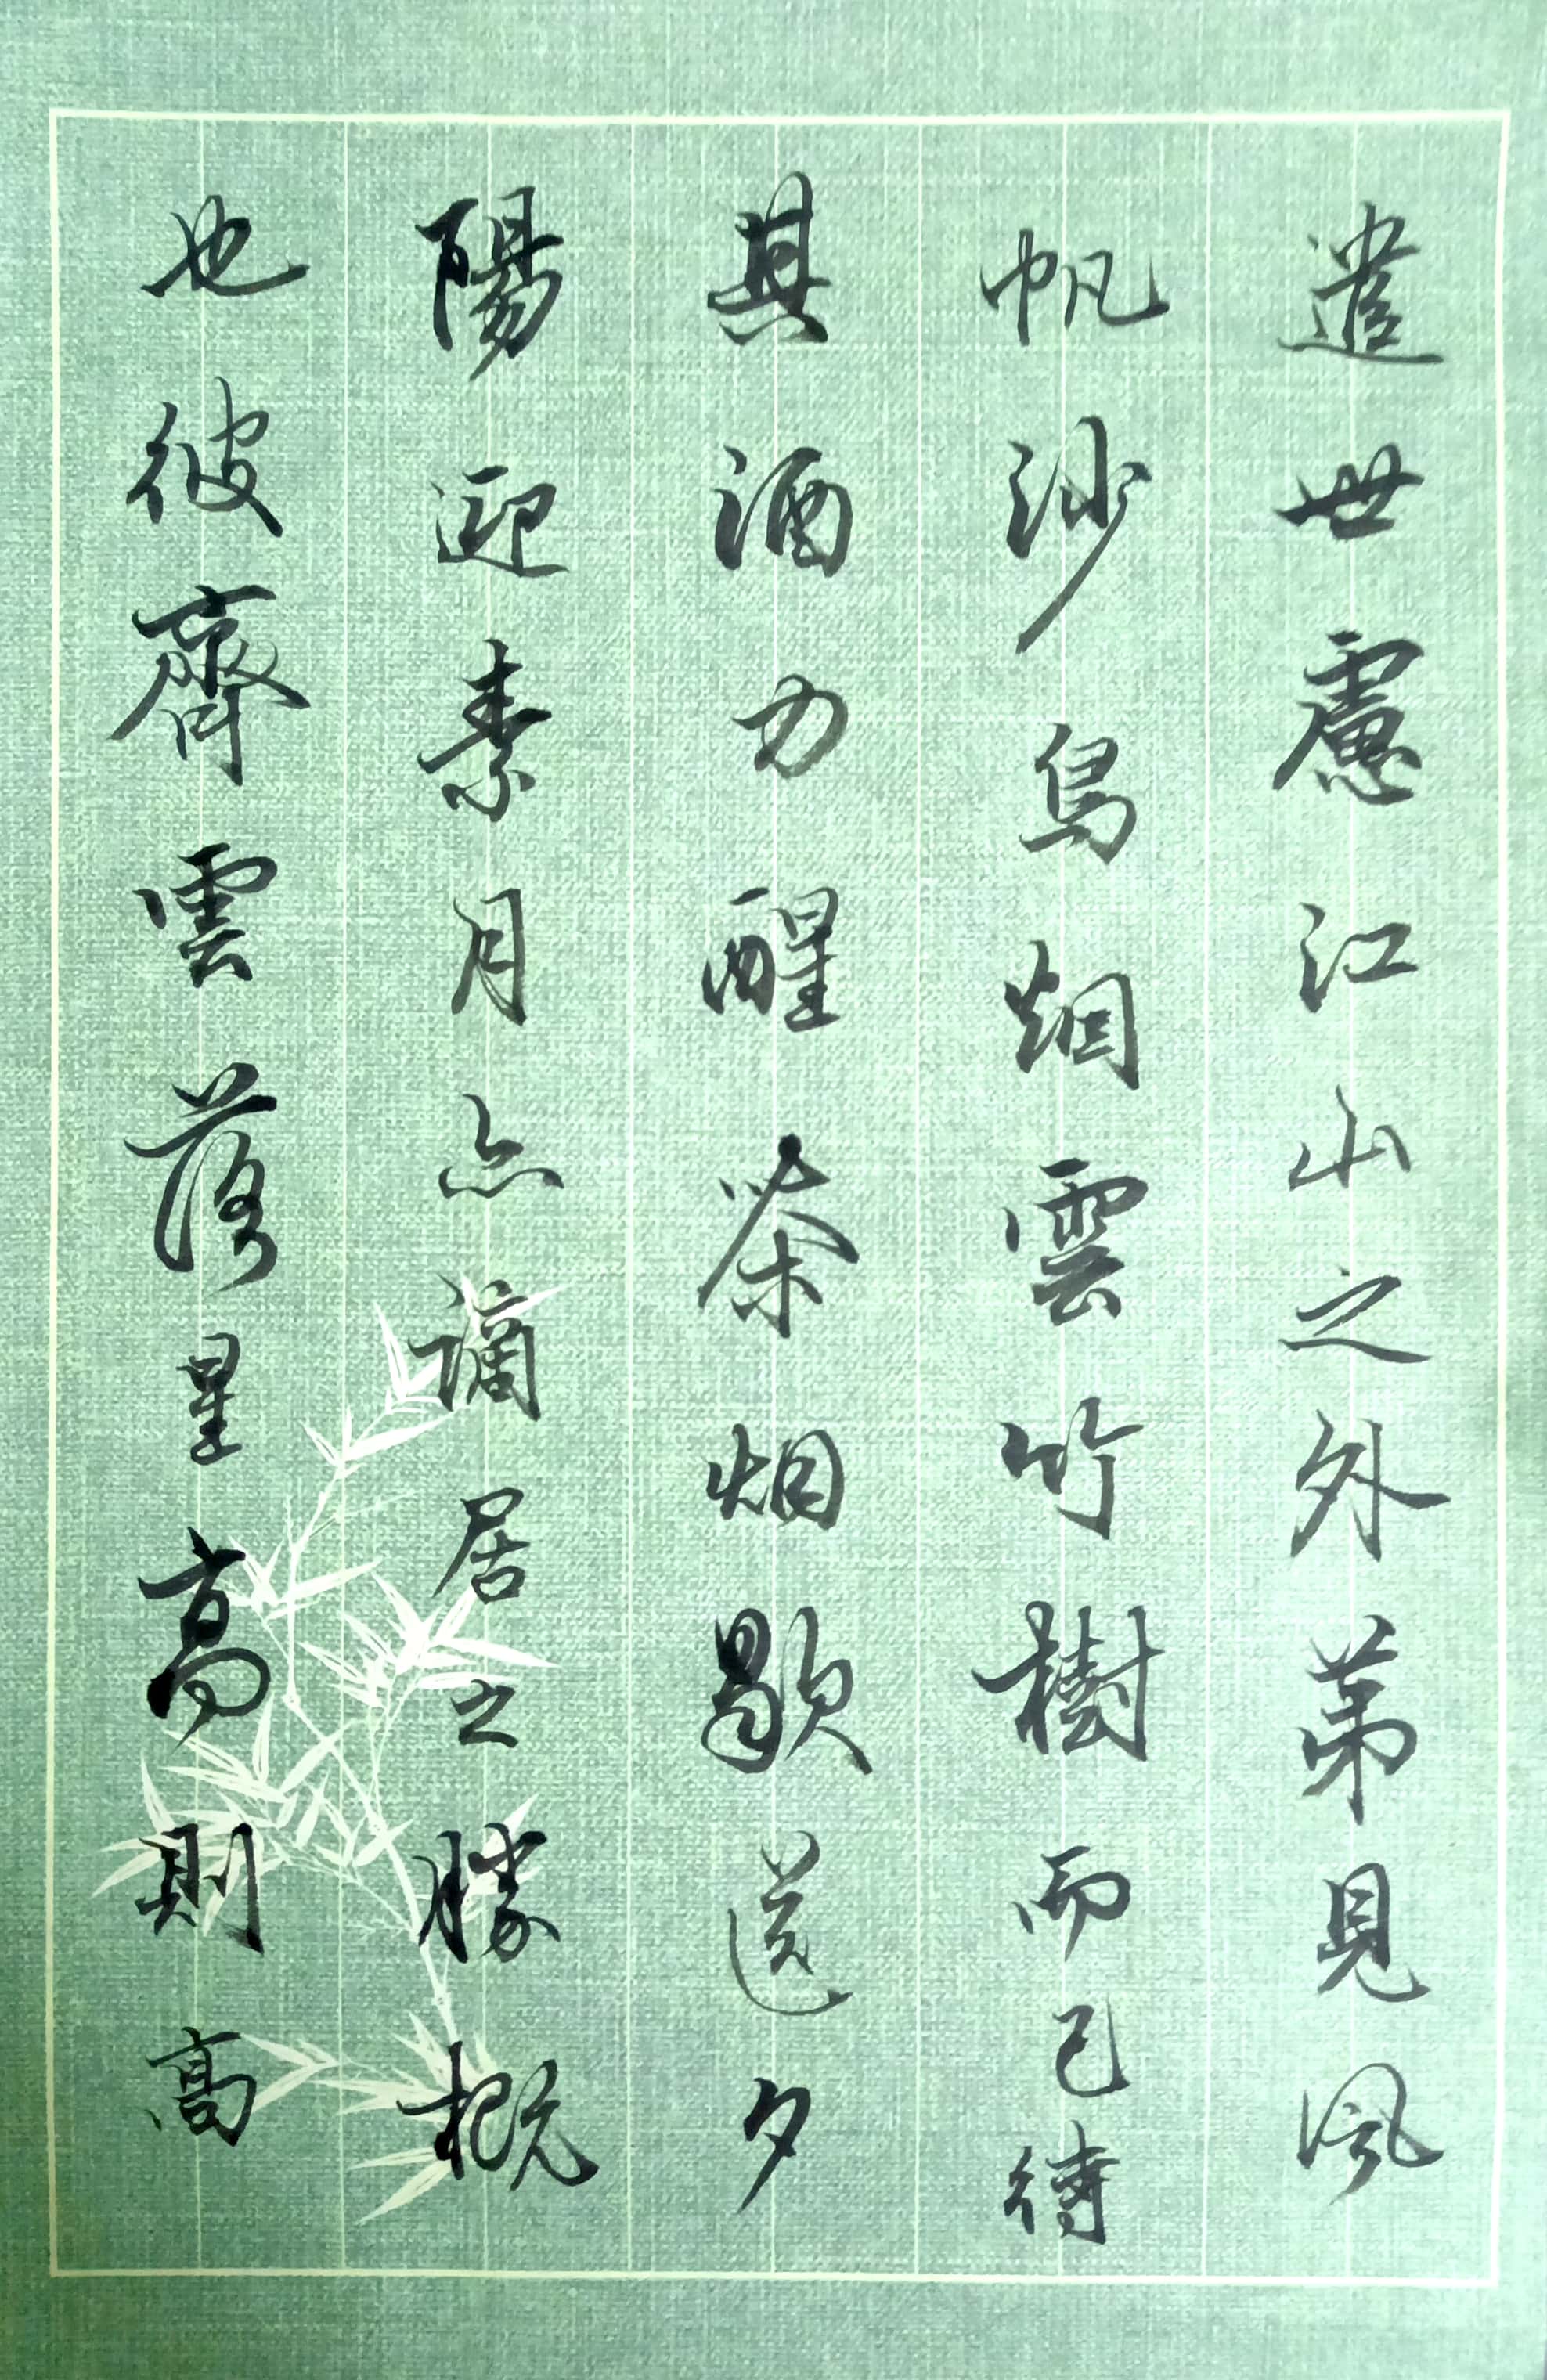 遣世慮江山之外第見風
帆沙鳥烟雲竹樹而已待
其酒力醒茶烟歇送夕
陽迎素月亦謫居之勝概
也彼齊雲落星高則高